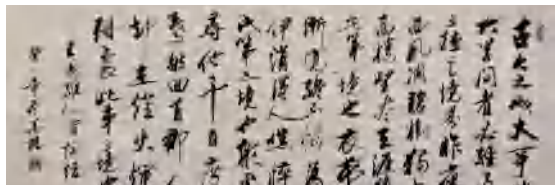 古今之成大事
大學問者必經過
三種之境界昨夜
西風凋碧樹獨上
高樓望盡天涯
此第一境也衣帶
漸寬終不悔為
伊消得人憔悴
此第二境也眾里
尋他千百度
驀然回首那人
卻在燈火闌
珊處此第三境也
王國維人間詞話